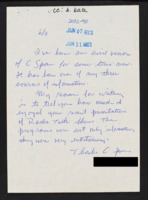 JUN 07 1983
6/2
I've been an avid viewer
of C Span for some time now.
It has been one of my three
sources of information.
My reason for writing
is to tell you how much I
enjoyed your
of Radio Talk Shows. The
programs were not only informative
they were very entertaining.
Thanks C Span